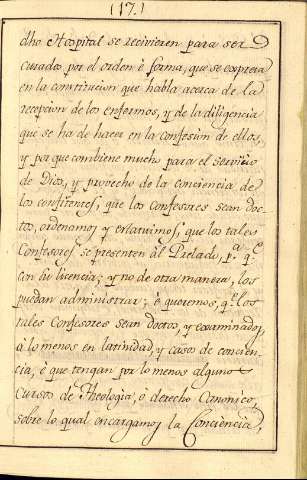 (17.)
dho Hospital se recivieren para ser
curados por el orden è forma, que se exprera
en la constitucion que habla acerca de la
recepcion de los enfermos, y de la diligencia
que se ha de hacer en la confesion de ellos,
y por que combiene mucho para el servicio
de Dios, y provecho de la conciencia de
los confitentes, que los confesores sean doc-
tos, ordenamos y estatuimos, que los tales
Confesores se presenten àl Prelado, p.ª q.e
con su licencia; y no de otra manera, los
puedan administrar; è queremos, q.e los
tales Confesores sean doctos, y examinados
à lo menos en latinidad, y casos de concien-
cia, è que tengan por lo menos algunos
Cursos de Theologia, ò derecho Canonico,
sobre lo qual encargamos la Conciencia,